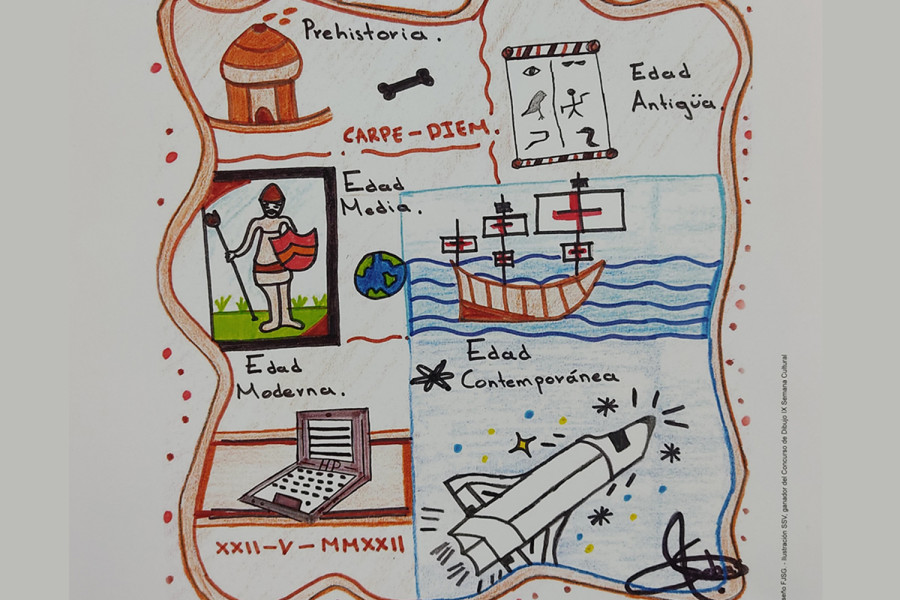 Prehistoria.
Edad
Antigüa.
CARPE-DIEM.
Edad
Media.
Edad
Contemporánea
Edad
Moderna.
HP
XXII-V-MMXXII
FJSG - Ilustración SSV, ganador del Concurso de Dibujo IX Semana Cultural